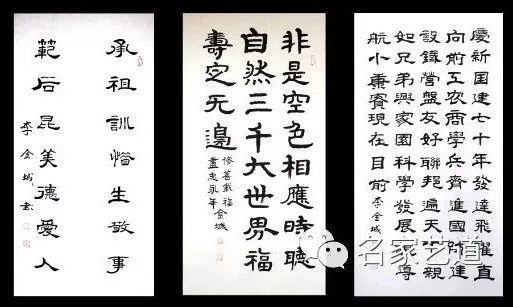 承祖訓生敬事
範后昆美德愛人
李金城書
非是空色相應時聽
自然三千大世界福
壽定无邊
修善載福 金城
永年
慶新国建七十年發達飛躍直
向前工农商學兵齊進國防建
設鐵營盤友好聯邦遍天下親
如兄弟興家園科學發展導
航小康實現在目前 李金城
名家艺道